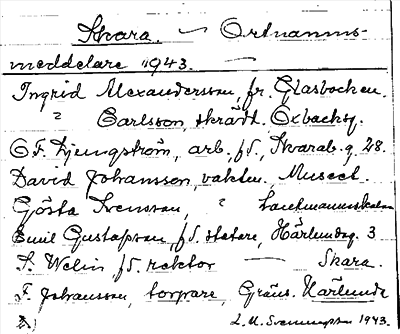 Skara. — Ortnamns-
meddelare 1943. —
Ingrid Alexandersson, fr. Glasbacken.
" Carlsson, skrädd. Oxbacksg.
C.F. Ljungström, arb. f.d., Skarab. g. 28.
David Johansson, vaktm. Museet.
Gösta Svensson, " Lantmannaskolan
Emil Gustafsson f.d. statare, Härlundag. 3
S. Welin f.d. rektor — Skara.
F. Johansson, torpare, Gräns. Härlunda
L. M. Svenungss 1943.